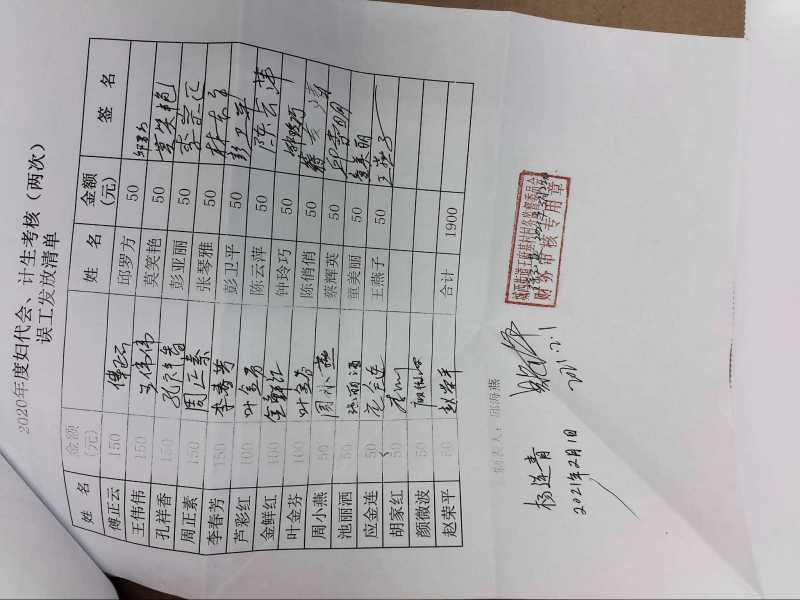 2020年度妇代会、计生考核（两次）
误工发放清单
姓 名 金额（元） 姓 名 金额（元） 签 名
傅正云 150 傅正云 邱罗方 50
王伟伟 150 王伟伟 莫笑艳 50 莫笑艳
孔祥香 150 孔祥香 彭亚丽 50
周正素 150 周正素 张琴雅 50
李春芳 150 李春芳 彭卫平 50 彭卫平
芦彩红 100 陈云萍 50 陈云萍
金鲜红 100 金鲜红 钟玲巧 50 钟玲巧
叶金芬 100 叶金芬 陈俏俏 50
周小燕 50 周小燕 蔡辉英 50
池丽洒 50 池丽洒 童美丽 50 童美丽
应金连 50 应金连 王燕子 50 王燕子
胡家红 50
颜微波 50 颜微波
赵荣平 50 赵荣平 合计 1900
制表人：邱海燕
杨连青
2021年2月1日
2021.2.1
财务审核专用章